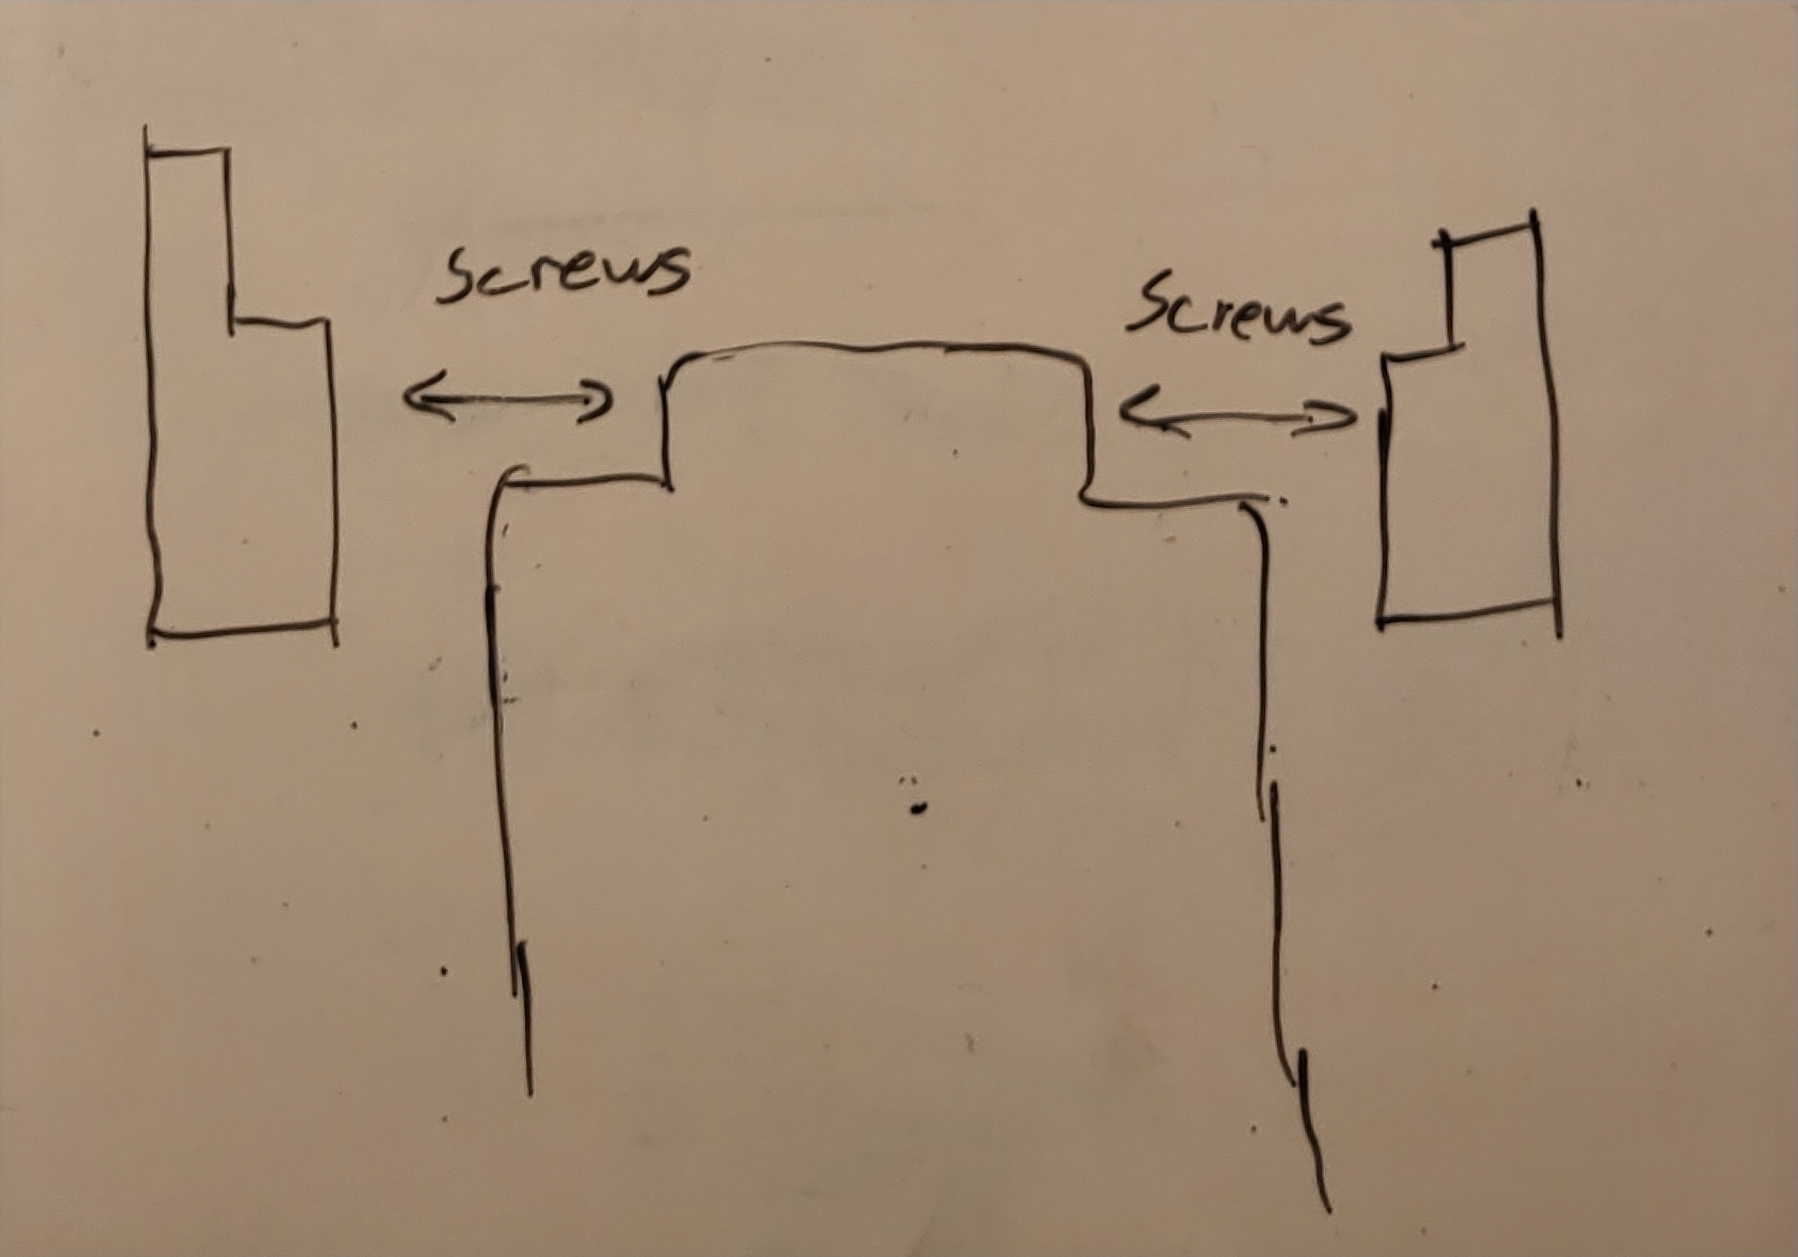 Screws
Screws